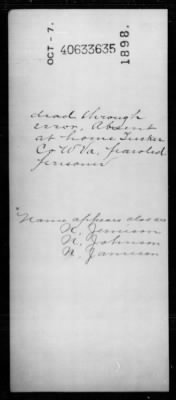 OCT - 7.
40633635
1898.
dead through
error, Absent
at home Tucker
Co W Va. paroled
prisoner
Name appears also as
N. Jemison
N. Johnson
N. Jamison